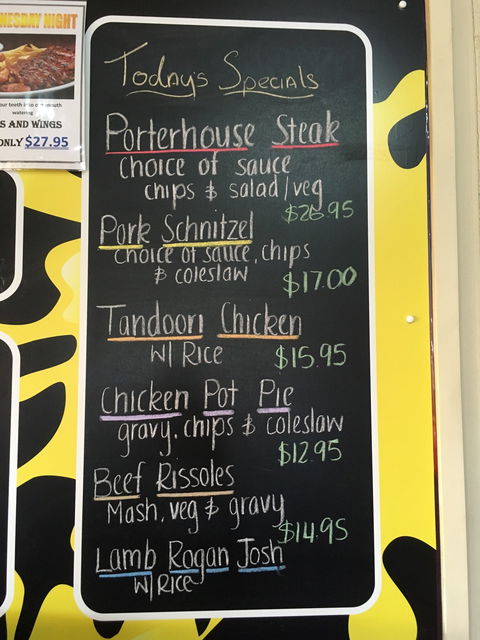 NESDAY NIGHT
our teeth into our mouth
watering
S AND WINGS
ONLY $27.95
Today's Specials
Porterhouse Steak
choice of sauce
chips & salad/veg
$26.95
Pork Schnitzel
choice of sauce, chips
& coleslaw
$17.00
Tandoori Chicken
W/ Rice
$15.95
Chicken Pot Pie
gravy, chips & coleslaw
$12.95
Beef Rissoles
Mash, veg & gravy
$14.95
Lamb Rogan Josh
W/ Rice